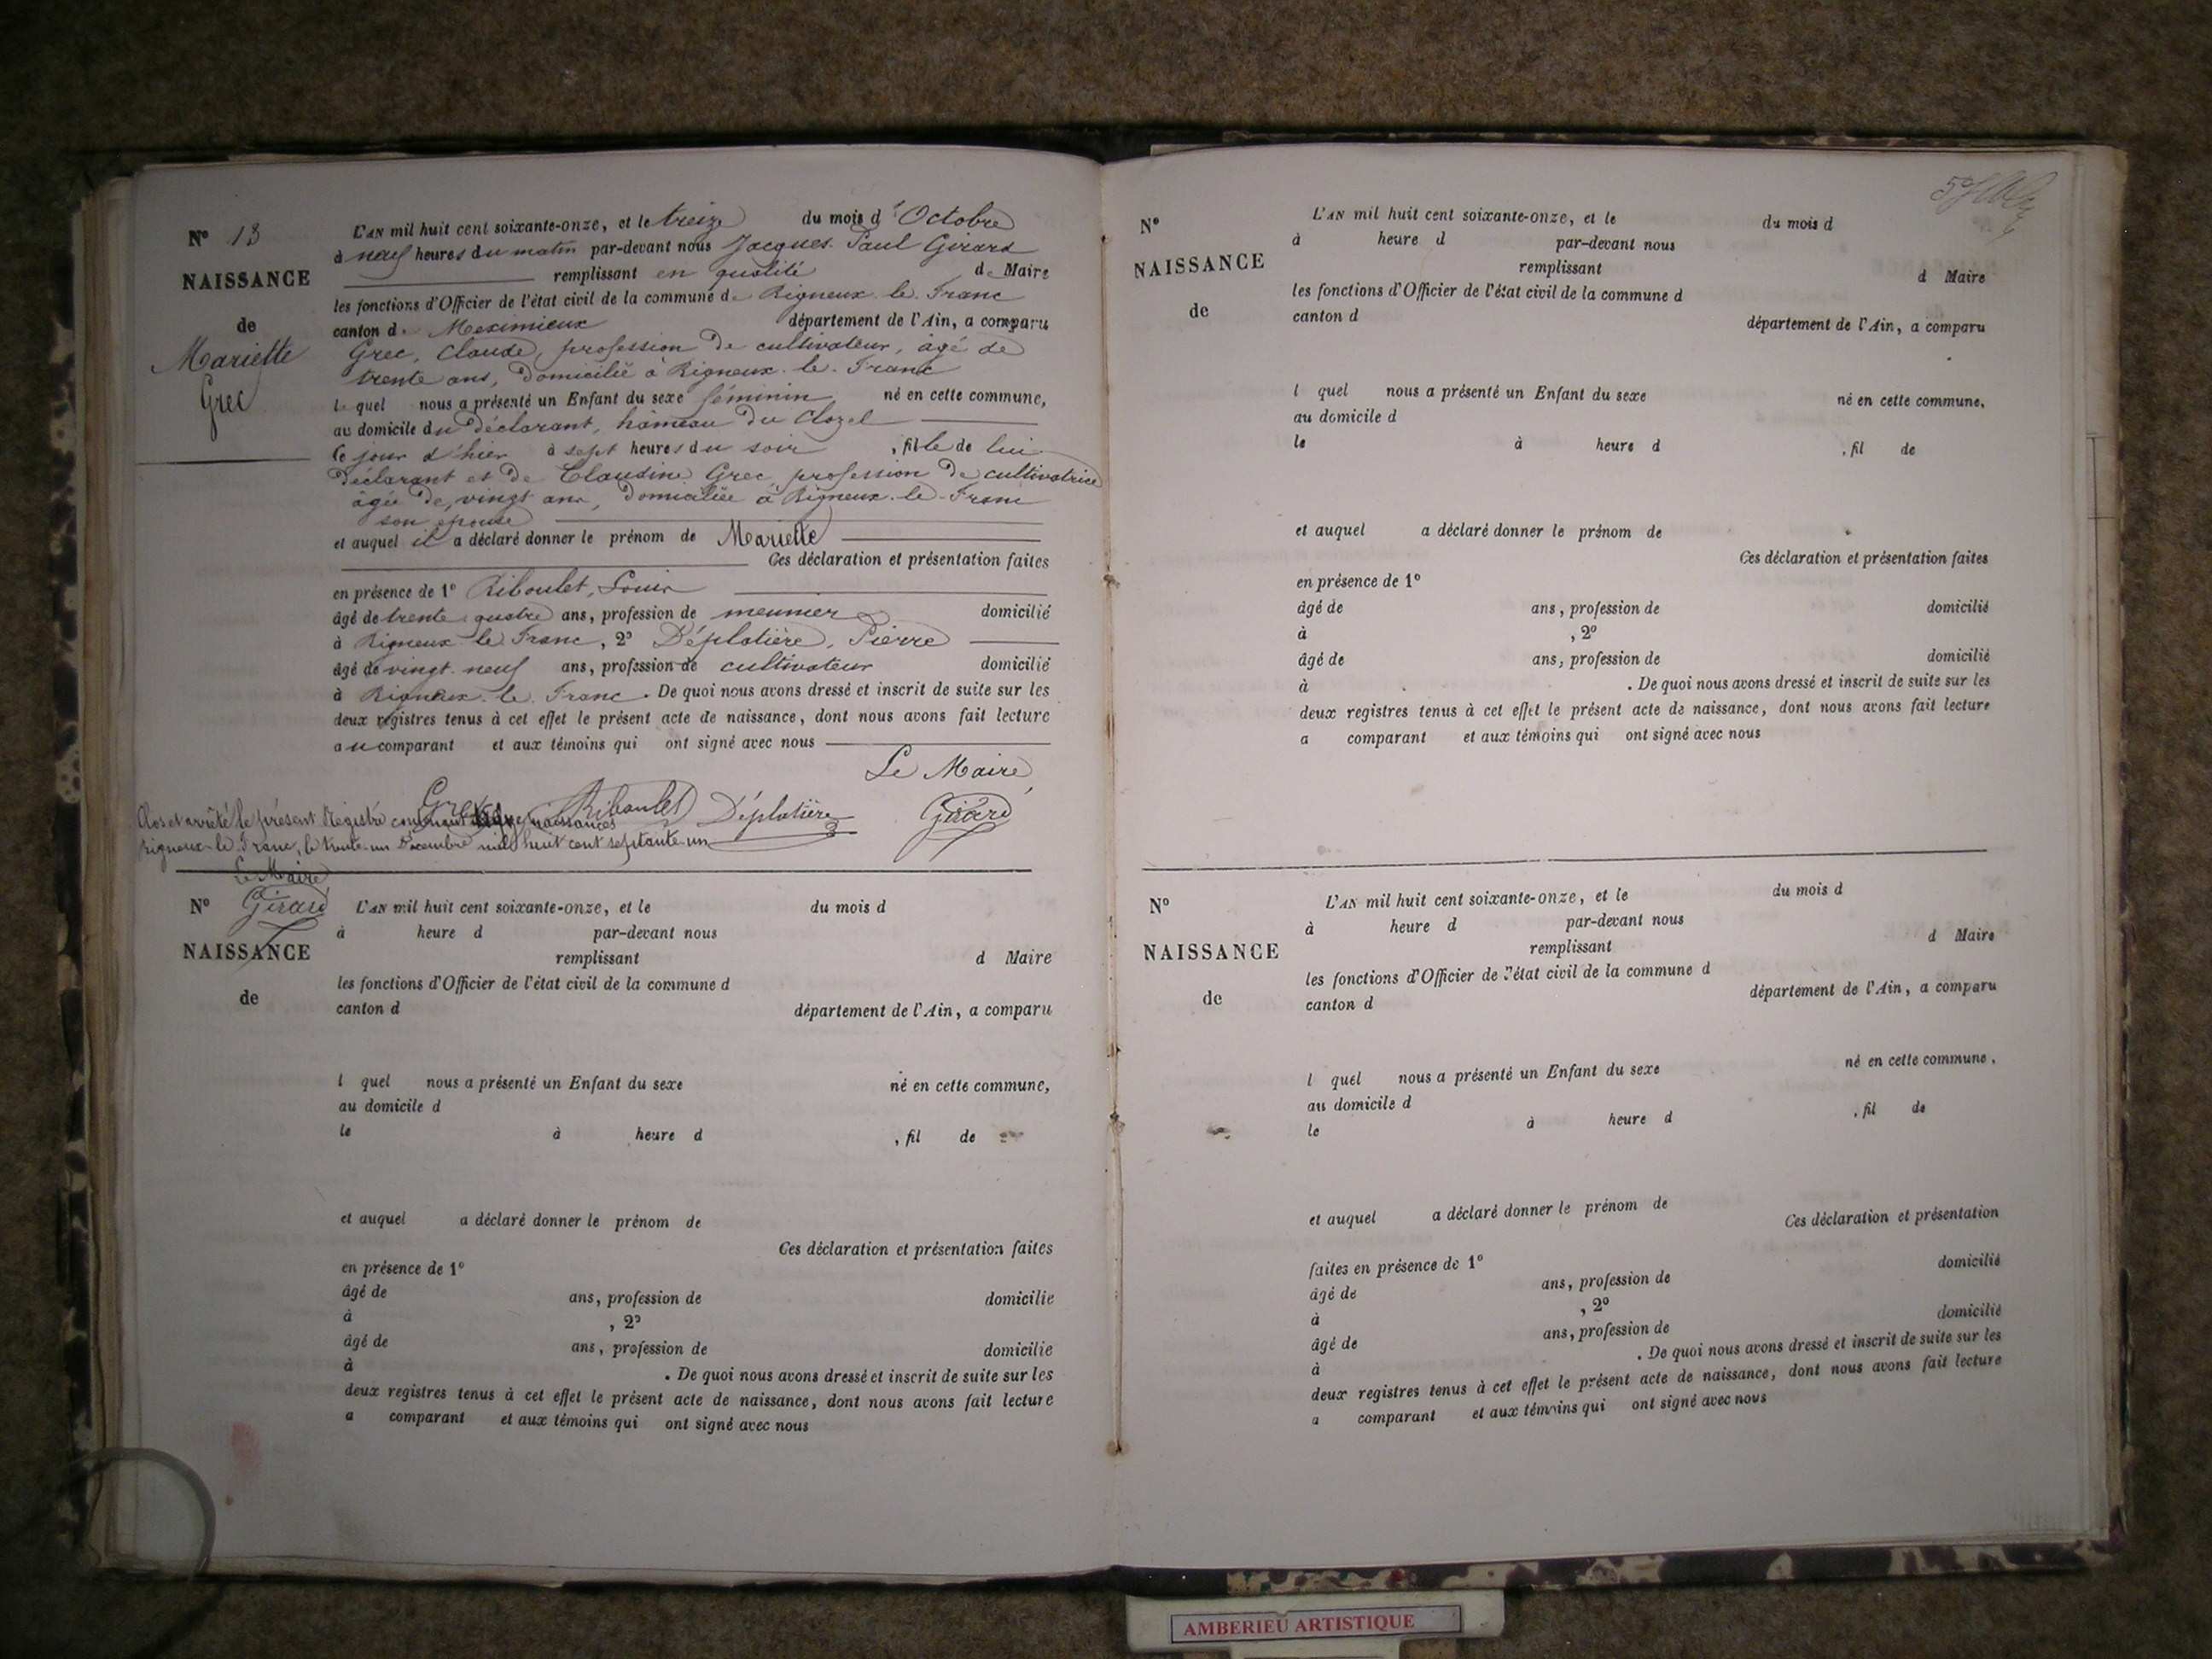 N° 13
NAISSANCE
de
Mariette
Grec
L'AN mil huit cent soixante-onze, et le treize du mois d'Octobre
à neuf heures du matin par-devant nous Jacques Paul Girard
remplissant en qualité de Maire
les fonctions d'Officier de l'état civil de la commune de Rigneux-le-Franc
canton de Meximieux département de l'Ain, a comparu
Grec, Claude, profession de cultivateur, âgé de
trente ans, domicilié à Rigneux-le-Franc
lequel nous a présenté un Enfant du sexe féminin né en cette commune,
au domicile du déclarant, hameau du Clozel
le jour d'hier à sept heures du soir, fille de lui
déclarant et de Claudine Grec, profession de cultivatrice
âgée de vingt ans, domiciliée à Rigneux-le-Franc
son épouse
et auquel il a déclaré donner le prénom de Mariette
Ces déclaration et présentation faites
en présence de 1° Riboulet, Louis
âgé de trente quatre ans, profession de meunier domicilié
à Rigneux-le-Franc, 2° Déplatière, Pierre
âgé de vingt-neuf ans, profession de cultivateur domicilié
à Rigneux-le-Franc. De quoi nous avons dressé et inscrit de suite sur les
deux registres tenus à cet effet le présent acte de naissance, dont nous avons fait lecture
au comparant et aux témoins qui ont signé avec nous
Le Maire,
Grec Riboulet Déplatière Girard
Clos et arrêté le présent Registre contenant naissances
Rigneux-le-Franc, le trente-un Décembre mil huit cent septante-un
Le Maire
Girard
N°
NAISSANCE
de
L'AN mil huit cent soixante-onze, et le du mois d
à heure d par-devant nous
remplissant d Maire
les fonctions d'Officier de l'état civil de la commune d
canton d département de l'Ain, a comparu
l quel nous a présenté un Enfant du sexe né en cette commune,
au domicile d
le à heure d , fil de
et auquel a déclaré donner le prénom de
Ces déclaration et présentation faites
en présence de 1°
âgé de ans, profession de domicilié
à , 2°
âgé de ans, profession de domicilié
à . De quoi nous avons dressé et inscrit de suite sur les
deux registres tenus à cet effet le présent acte de naissance, dont nous avons fait lecture
a comparant et aux témoins qui ont signé avec nous
N°
NAISSANCE
de
L'AN mil huit cent soixante-onze, et le du mois d
à heure d par-devant nous
remplissant d Maire
les fonctions d'Officier de l'état civil de la commune d
canton d département de l'Ain, a comparu
l quel nous a présenté un Enfant du sexe né en cette commune,
au domicile d
le à heure d , fil de
et auquel a déclaré donner le prénom de
Ces déclaration et présentation faites
en présence de 1°
âgé de ans, profession de domicilié
à , 2°
âgé de ans, profession de domicilié
à . De quoi nous avons dressé et inscrit de suite sur les
deux registres tenus à cet effet le présent acte de naissance, dont nous avons fait lecture
a comparant et aux témoins qui ont signé avec nous
N°
NAISSANCE
de
L'AN mil huit cent soixante-onze, et le du mois d
à heure d par-devant nous
remplissant d Maire
les fonctions d'Officier de l'état civil de la commune d
canton d département de l'Ain, a comparu
l quel nous a présenté un Enfant du sexe né en cette commune,
au domicile d
le à heure d , fil de
et auquel a déclaré donner le prénom de
Ces déclaration et présentation
faites en présence de 1°
âgé de ans, profession de domicilié
à , 2°
âgé de ans, profession de domicilié
à . De quoi nous avons dressé et inscrit de suite sur les
deux registres tenus à cet effet le présent acte de naissance, dont nous avons fait lecture
a comparant et aux témoins qui ont signé avec nous
AMBERIEU ARTISTIQUE